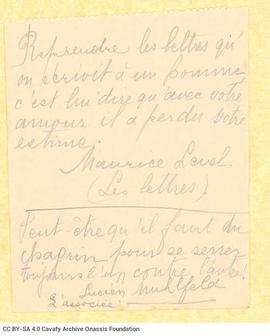 Reprendre les lettres qu'
on écrivit à un homme
c'est lui dire qu'avec votre
amour il a perdu votre
estime.
Maurice Level.
(Les lettres)
Peut-être qu'il faut du
chagrin pour se serrer
toujours l'un contre l'autre!
Lucien Muhlfeld
L'associée
CC BY-SA 4.0 Cavafy Archive Onassis Foundation